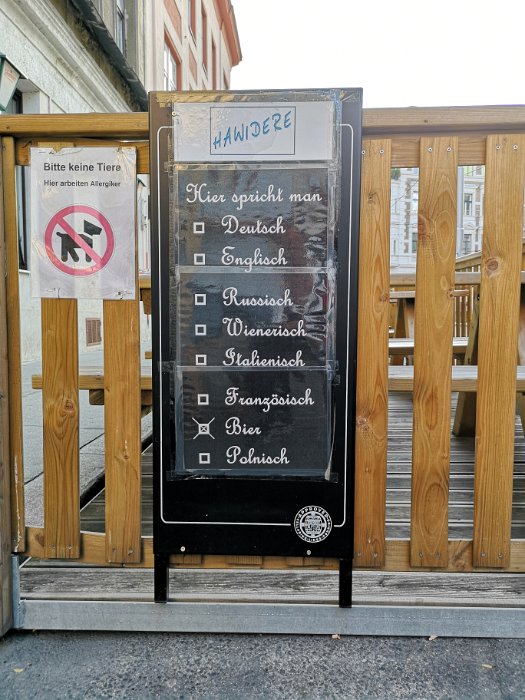 Bitte keine Tiere
Hier arbeiten Allergiker
HAWIDERE
Hier spricht man
Deutsch
Englisch
Russisch
Wienerisch
Italienisch
Französisch
Bier
Polnisch
APPROVED